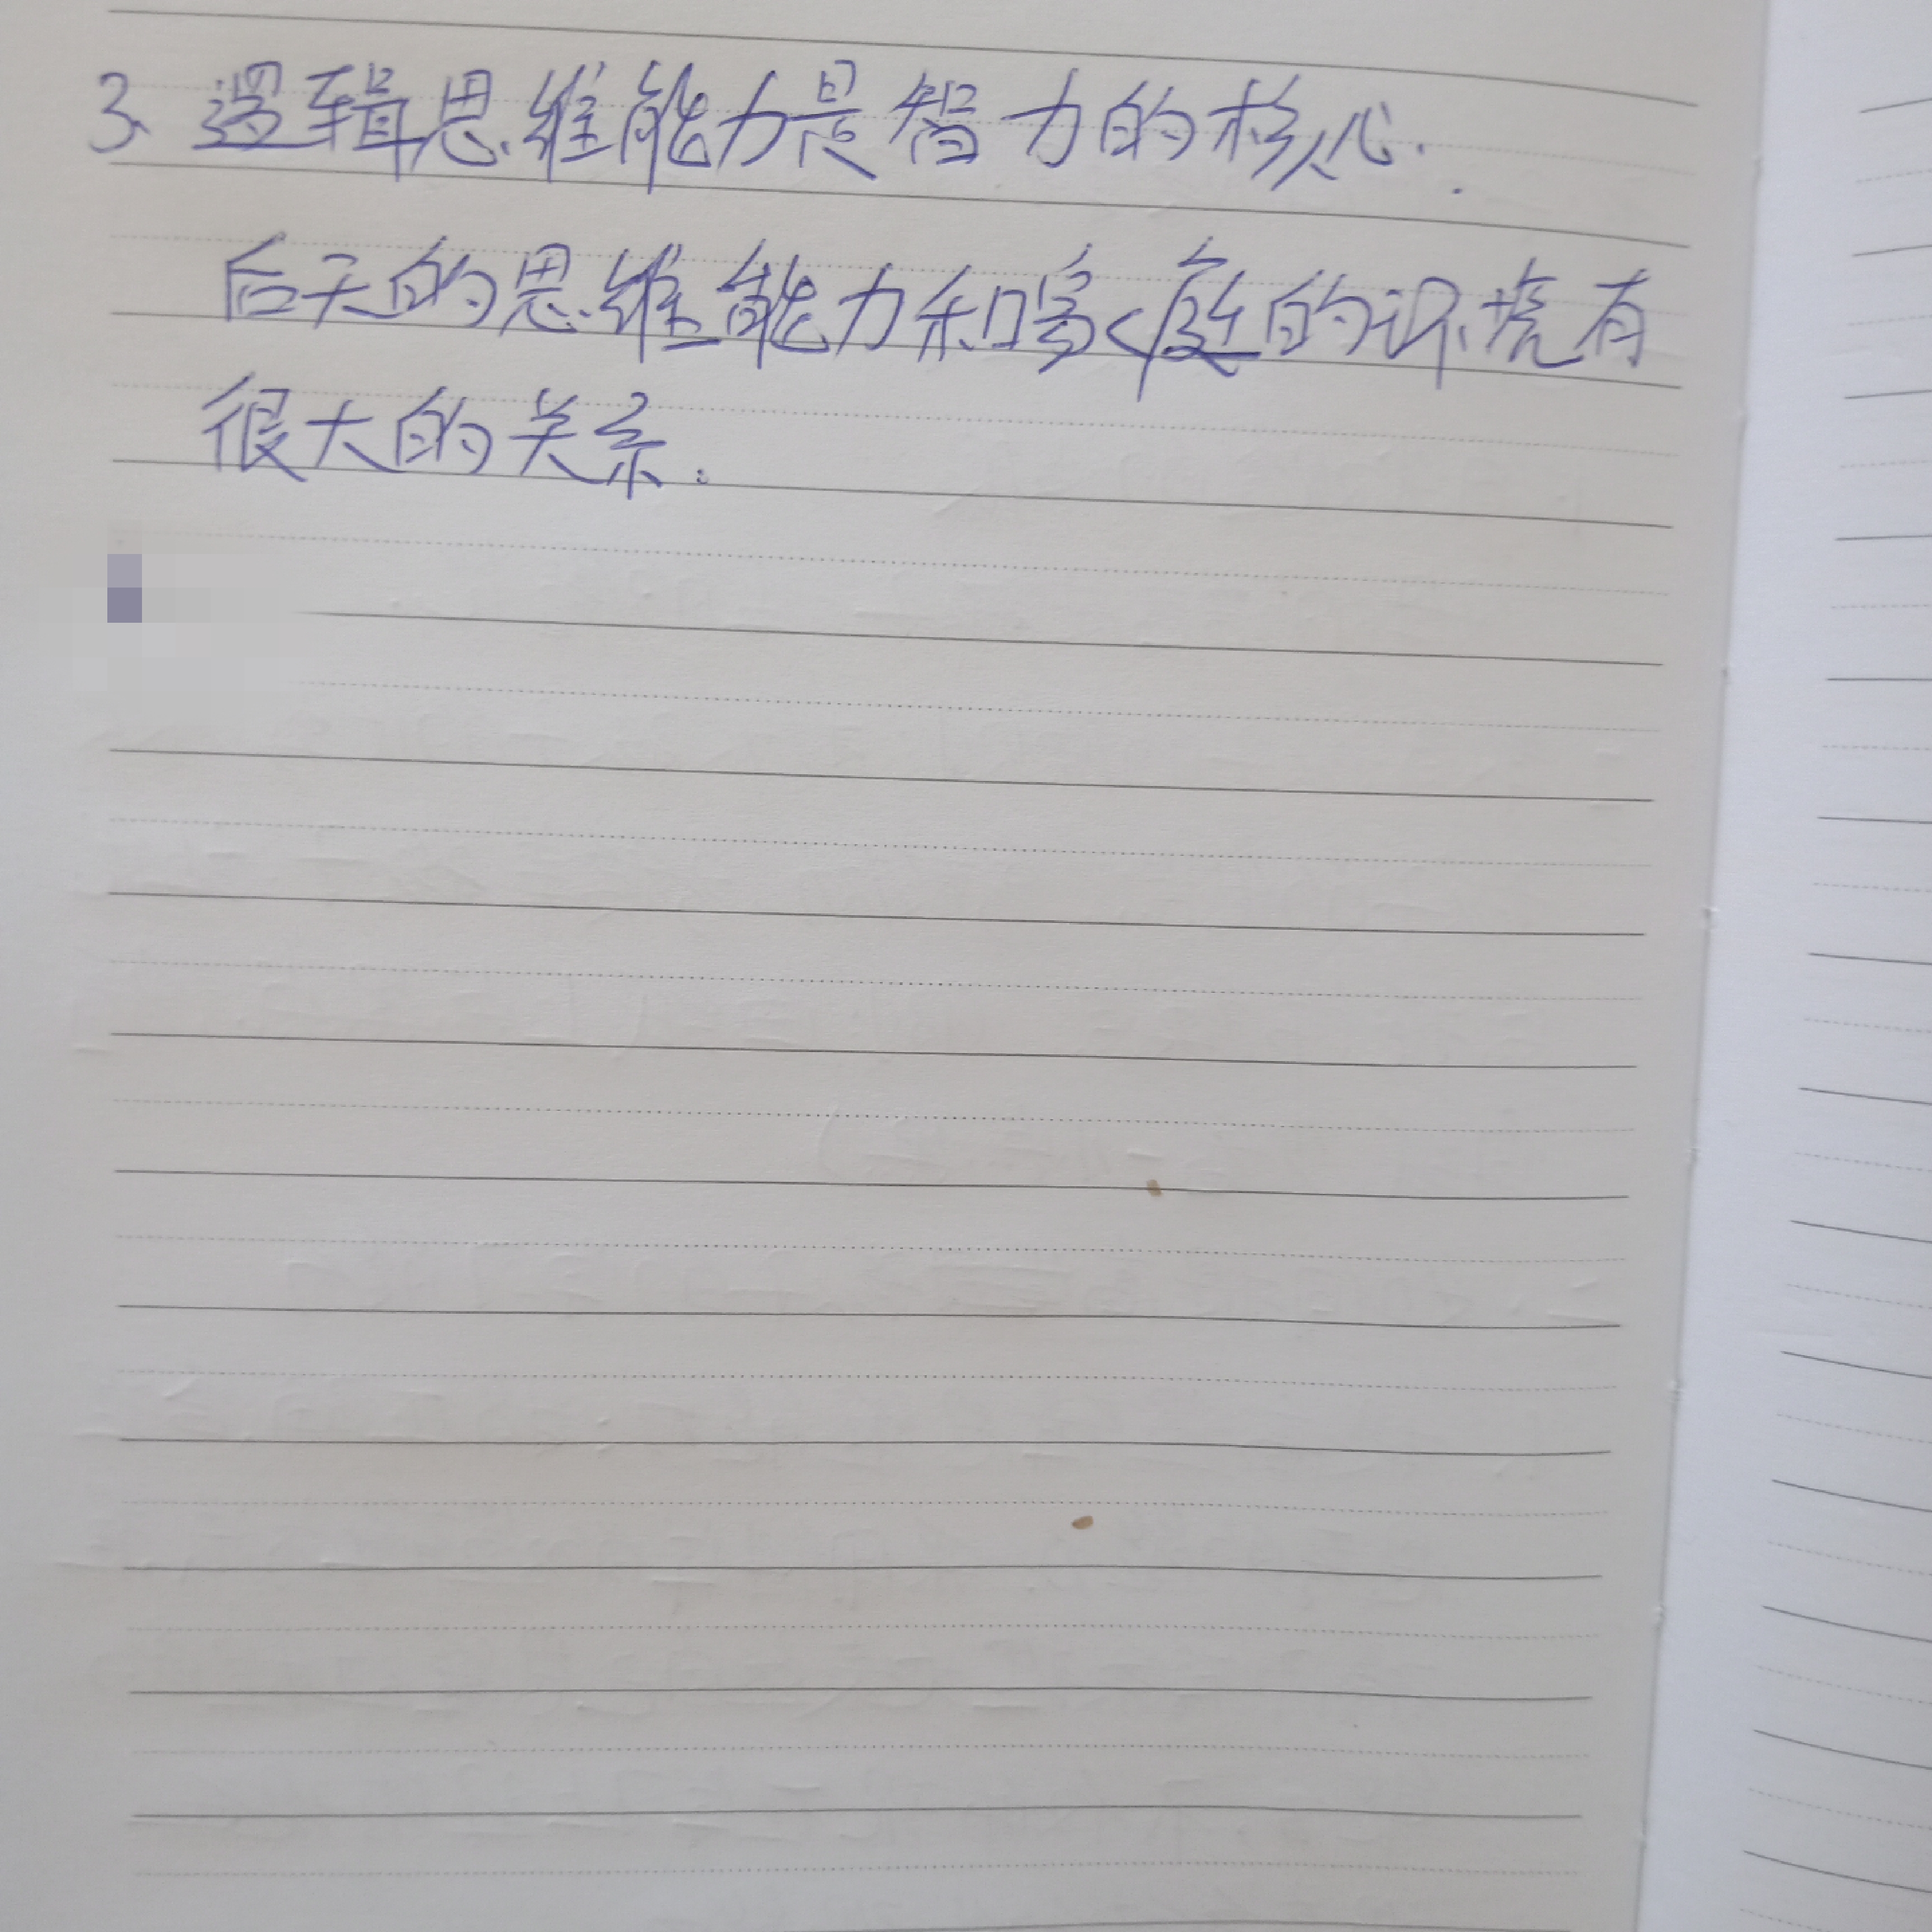 3、逻辑思维能力是智力的核心.
后天的思维能力和家庭的环境有
很大的关系。